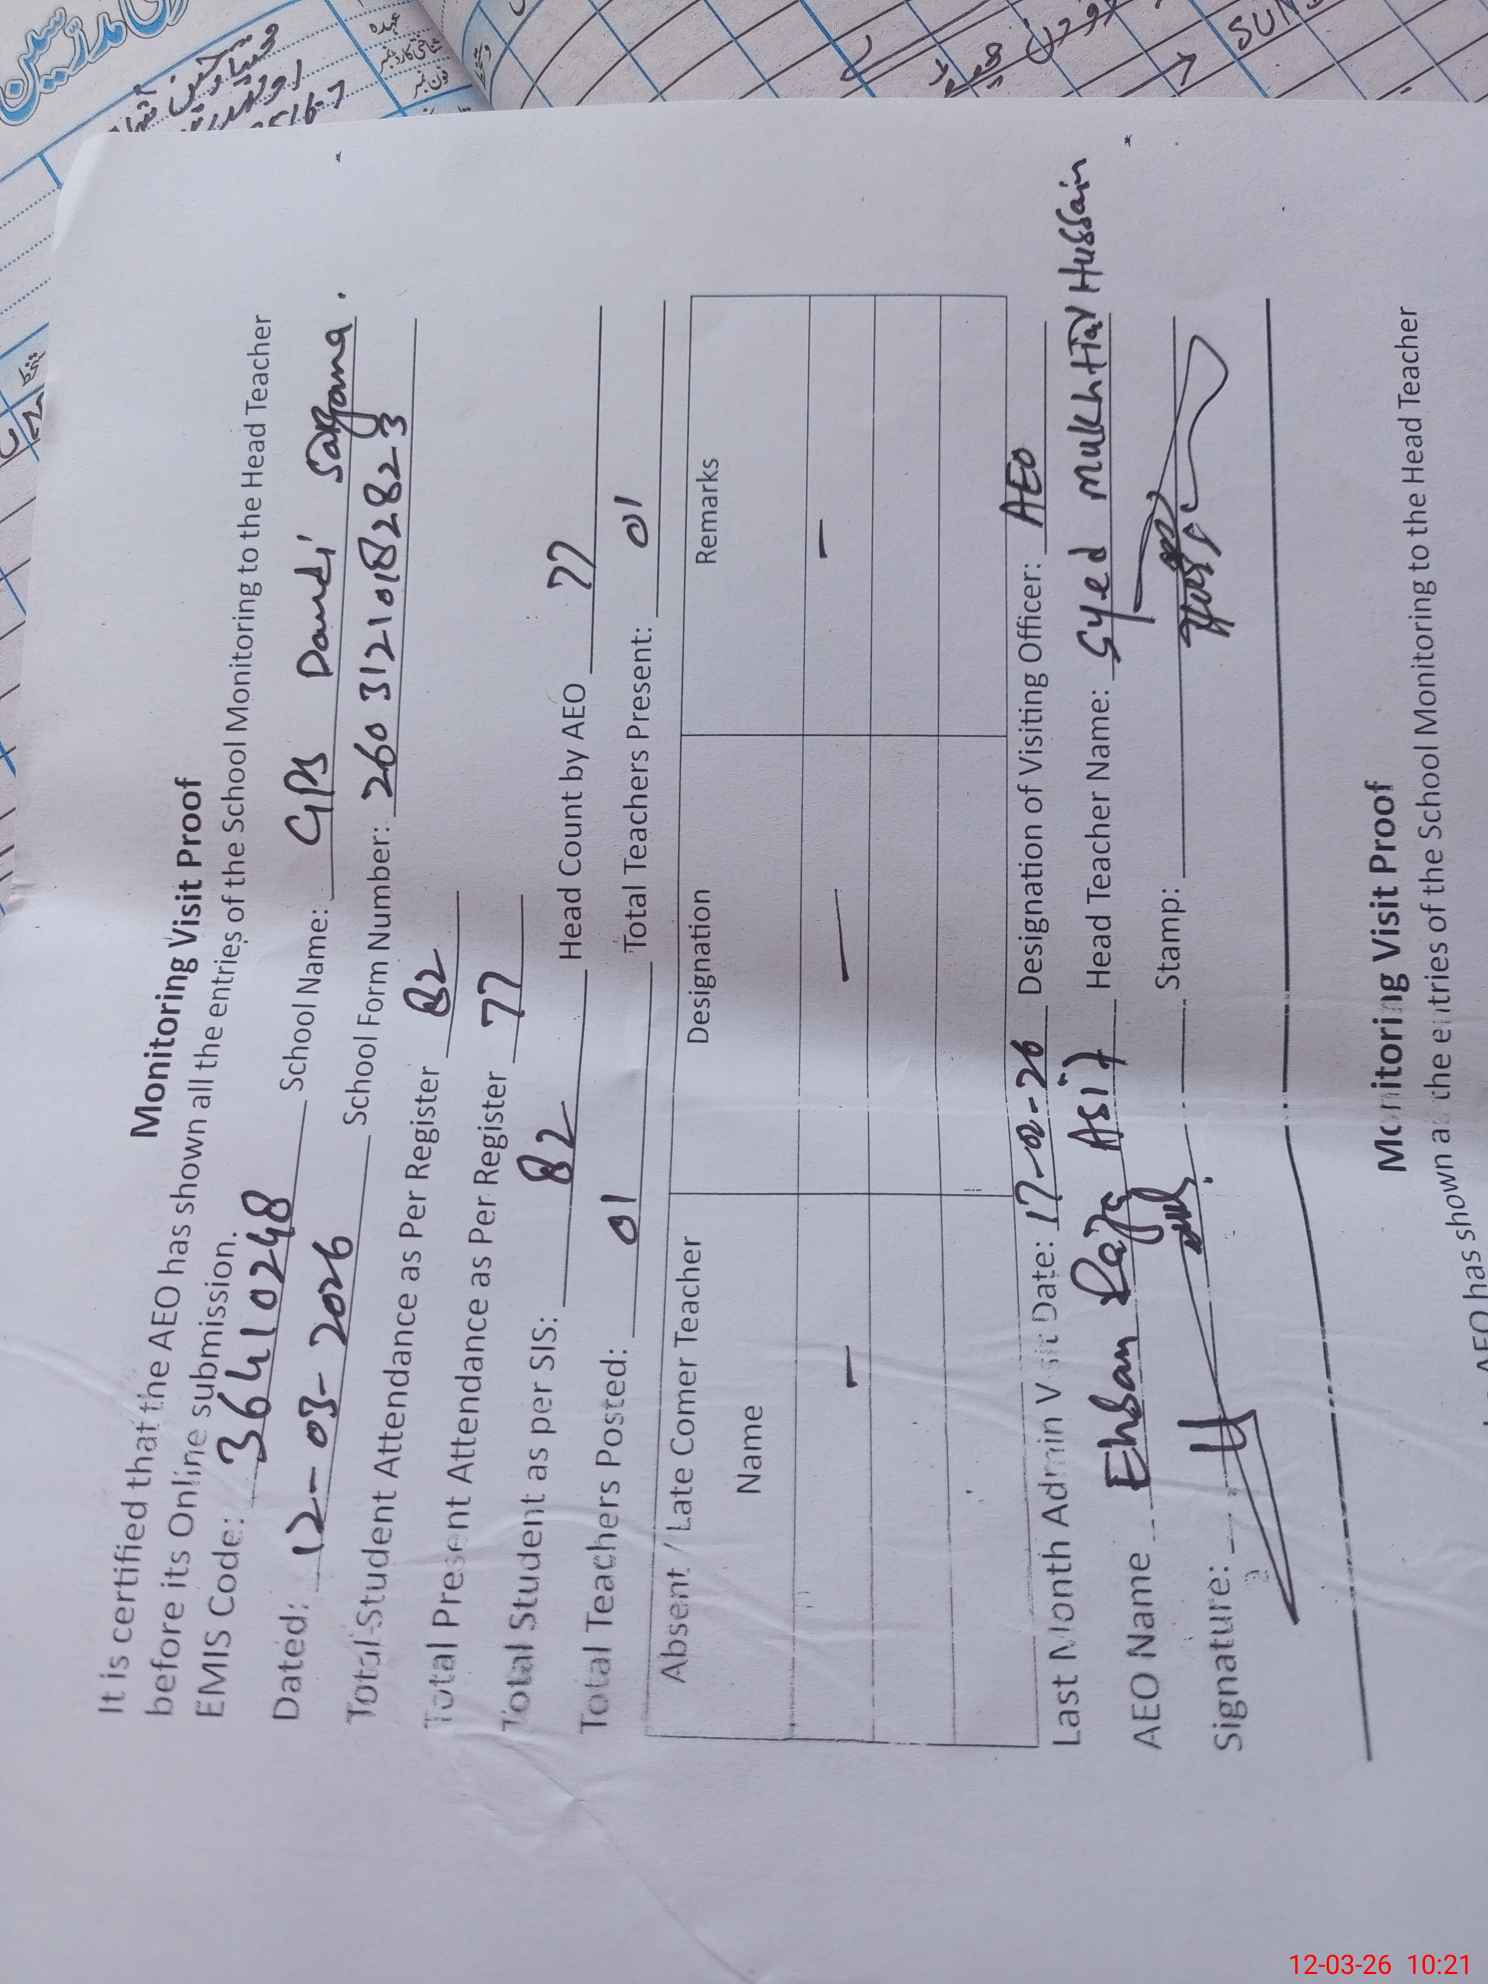 Monitoring Visit Proof
It is certified that the AEO has shown all the entries of the School Monitoring to the Head Teacher
before its Online submission.
EMIS Code: 36410248 School Name: GPS Daudi Sargana.
Dated: 12-03-2026 School Form Number: 26031210182823
Total Student Attendance as Per Register 82
Total Present Attendance as Per Register 77
Total Student as per SIS: 82 Head Count by AEO 77
Total Teachers Posted: 01 Total Teachers Present: 01
Absent / Late Comer Teacher Designation Remarks
Name
— — —
Last Month Admin Visit Date: 17-02-26 Designation of Visiting Officer: AEO
AEO Name Ehsan Raja Asif Head Teacher Name: Syed Mukhtiar Hussain
Signature: Stamp:
Monitoring Visit Proof
AEO has shown all the entries of the School Monitoring to the Head Teacher
12-03-26 10:21